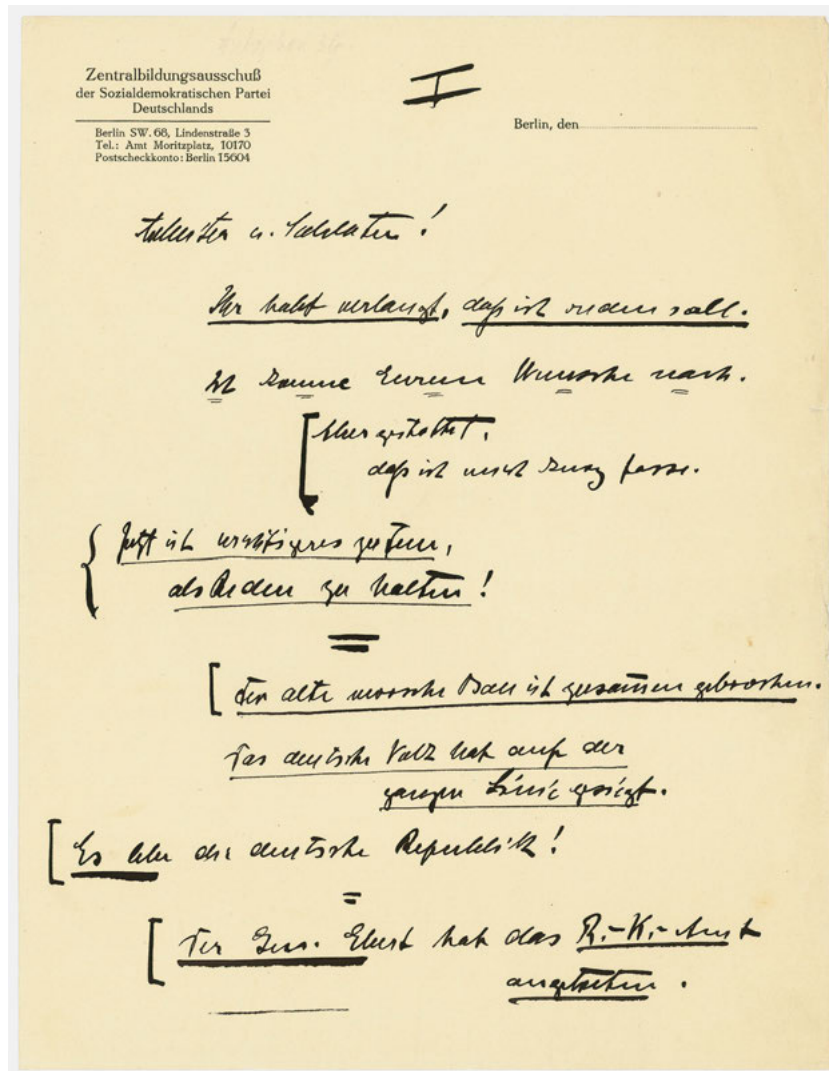 Zentralbildungsausschuß
der Sozialdemokratischen Partei
Deutschlands
Berlin SW. 68, Lindenstraße 3
Tel.: Amt Moritzplatz, 10170
Postscheckkonto: Berlin 15604
I
Berlin, den
Arbeiter u. Soldaten!
Ihr habt verlangt, daß ich reden soll.
Ich komme Eurem Wunsche nach.
[Aber gestattet,
daß ich mich kurz fasse.
{ Jetzt ist wichtigeres zu tun,
als Reden zu halten!
[ Der alte morsche Bau ist zusammen gebrochen.
Das deutsche Volk hat auf der
ganzen Linie gesiegt.
[ Es lebe die deutsche Republik!
[ Der Gen. Ebert hat das R.-K.-Amt
angetreten.